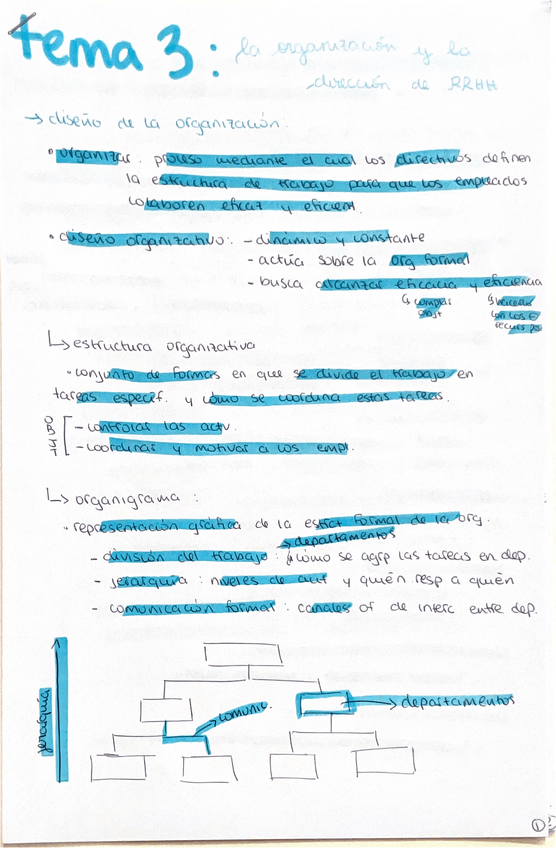 tema 3: la organización y la
dirección de RRHH
→ diseño de la organización:
• organizar. proceso mediante el cual los directivos definen
la estructura de trabajo para que los empleados
colaboren eficaz y eficient.
• diseño organizativo: - dinámico y constante
- actúa sobre la org formal
- busca alcanzar eficacia y eficiencia
↳ cumplir ↳ hacerlo
objt con los
recurs
↳ estructura organizativa
• conjunto de formas en que se divide el trabajo en
tareas especif. y cómo se coordina estas tareas.
OBJT
- controlar las actv.
- coordinar y motivar a los empl.
↳ organigrama :
• representación gráfica de la estrct formal de la org.
→ departamentos
- división del trabajo : cómo se agrp las tareas en dep.
- jerarquía : niveles de aut y quién resp a quién
- comunicación formal : canales of de interc entre dep.
jerarquía
→ comunic.
→ departamentos
1